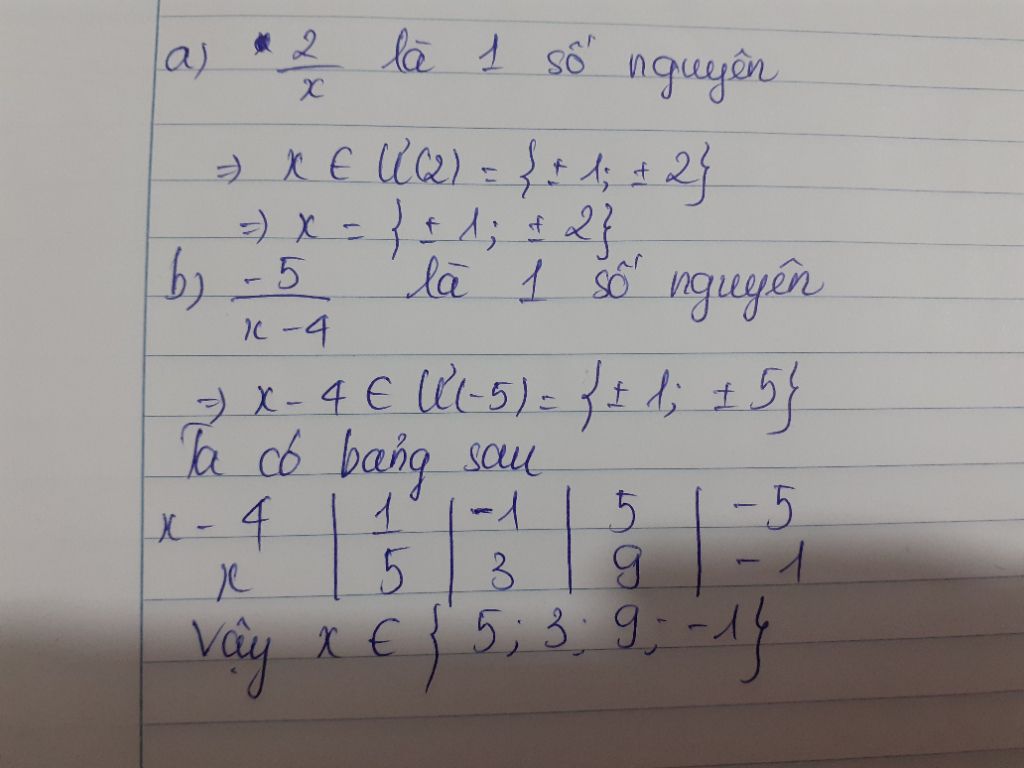 a) 2/x là 1 số nguyên
=) x ∈ Ư(2) = {±1; ±2}
=) x = {±1; ±2}
b) -5/x-4 là 1 số nguyên
=) x - 4 ∈ Ư(-5) = {±1; ±5}
Ta có bảng sau
x - 4 | 1 | -1 | 5 | -5
x | 5 | 3 | 9 | -1
Vậy x ∈ { 5; 3; 9; -1}